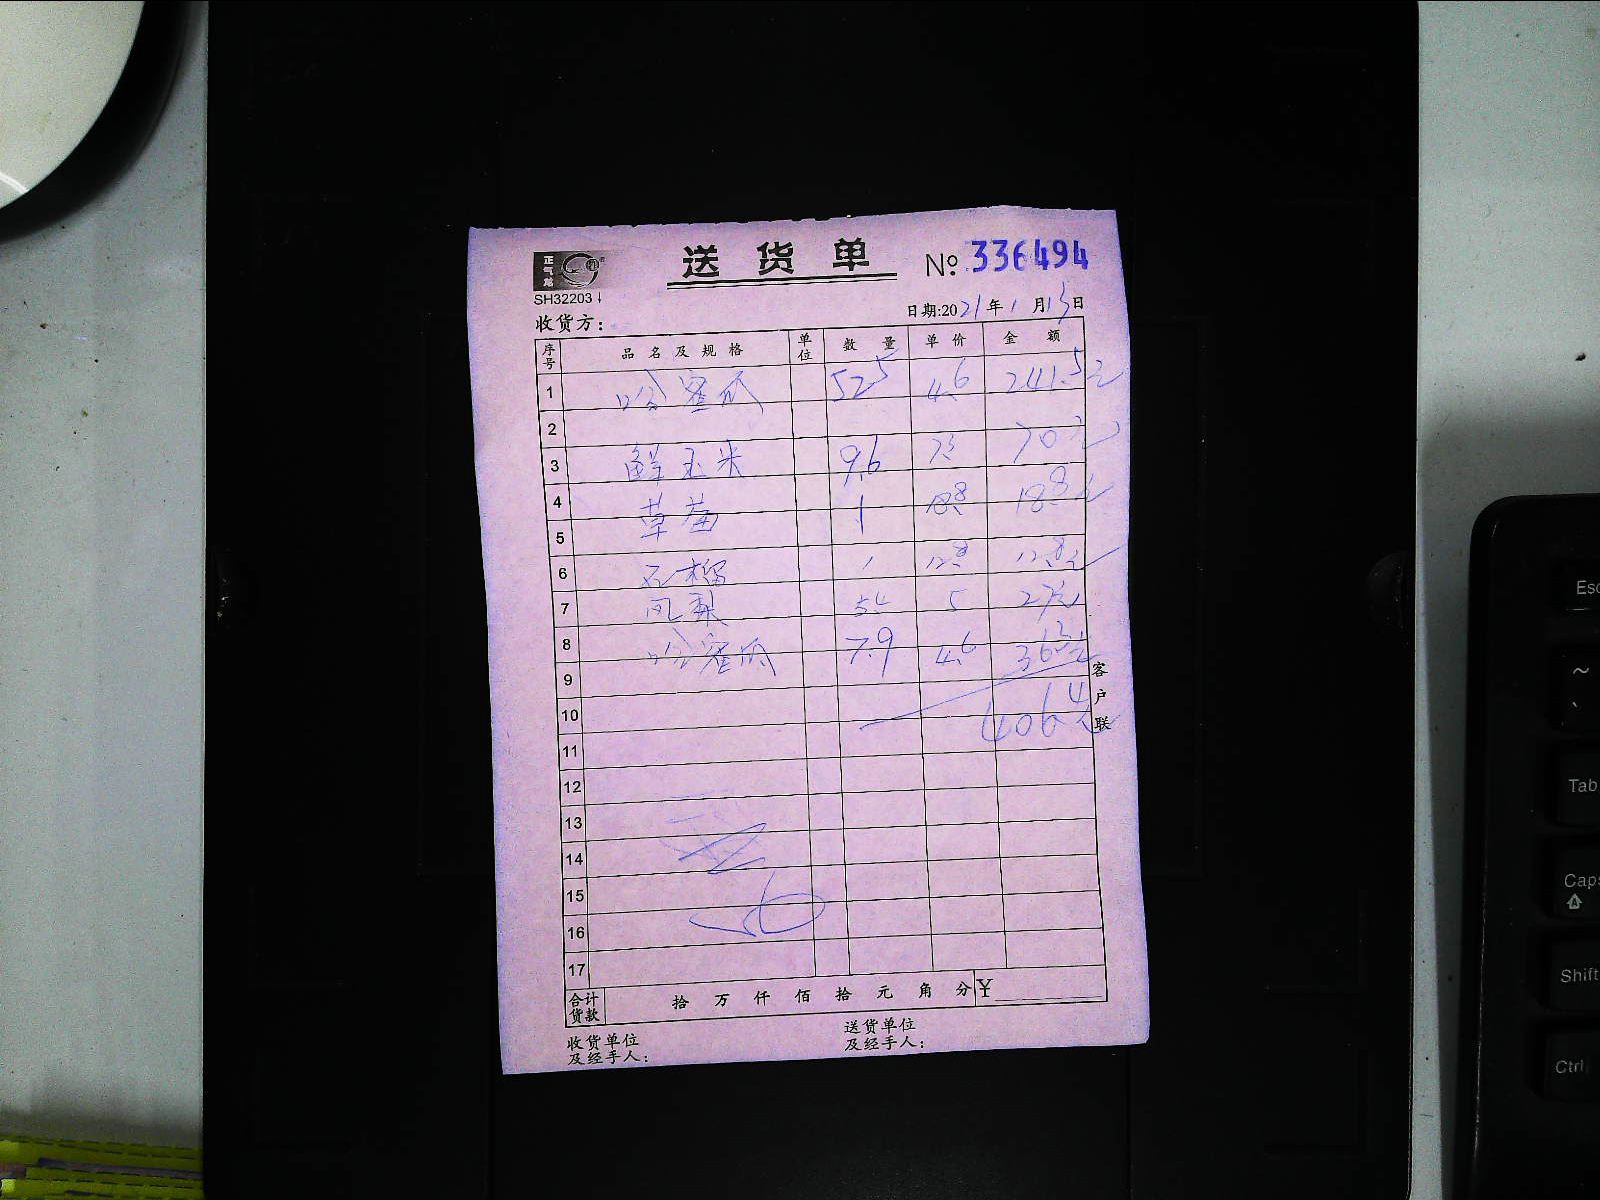 正气然
送货单
№ 336494
SH32203
日期:2021年1月13日
收货方:
序号 品名及规格 单位 数量 单价 金额
1 哈蜜瓜 52.5 4.6 241.5元
2
3 鲜玉米 9.6 7.3 70元
4 草莓 1 18.8 18.8元
5
6 石榴 1 12.8 12.8元
7 凤梨 5.4 5 27元
8 哈蜜瓜 7.9 4.6 36.3元
9
10 406.4元
11
12
13
14
15
16
17
客户联
合计货款 拾 万 仟 佰 拾 元 角 分 ¥
收货单位及经手人:
送货单位及经手人:
Esc
~
`
Tab
Caps
Shift
Ctrl